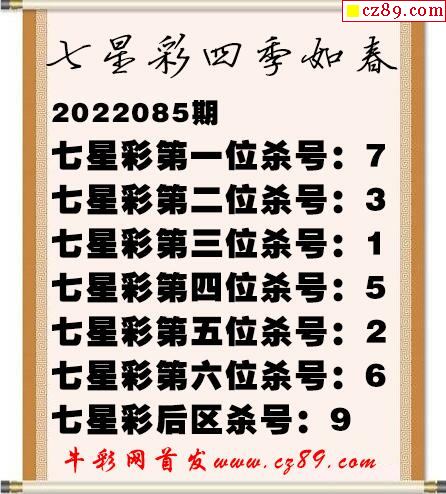 cz89.com
七星彩四季如春
2022085期
七星彩第一位杀号：7
七星彩第二位杀号：3
七星彩第三位杀号：1
七星彩第四位杀号：5
七星彩第五位杀号：2
七星彩第六位杀号：6
七星彩后区杀号：9
牛彩网首发www.cz89.com